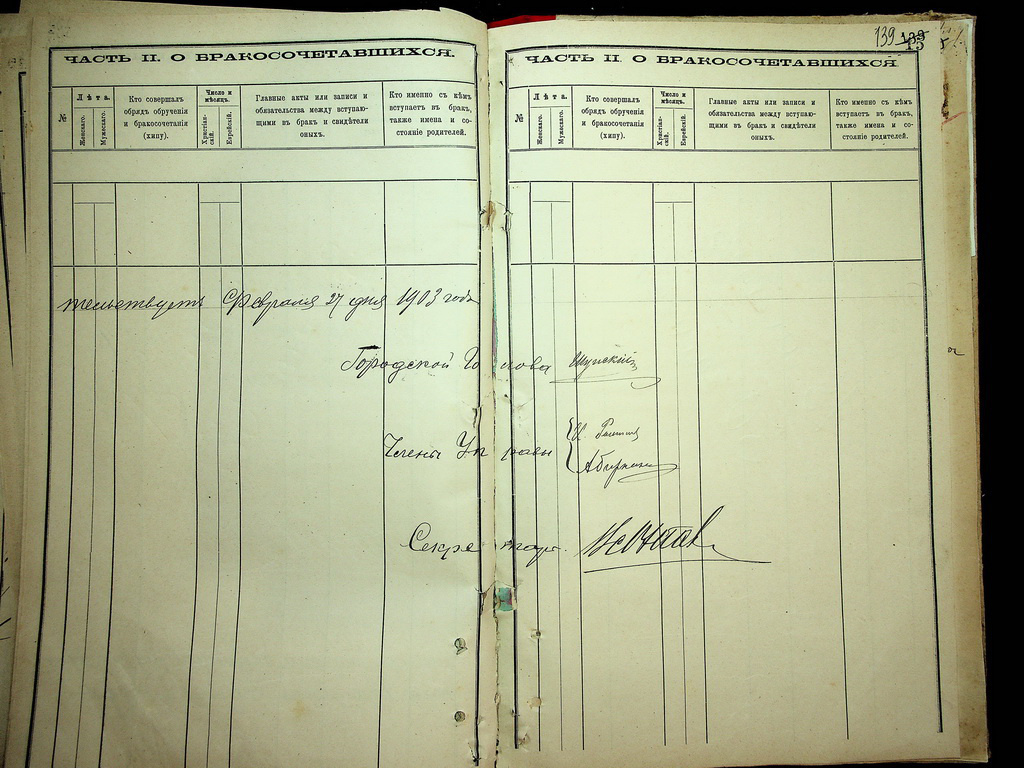 139 139
15
ЧАСТЬ II. О БРАКОСОЧЕТАВШИХСЯ.
№
Лѣта.
Женскаго.
Мужескаго.
Кто совершалъ
обрядъ обрученія
и бракосочетанія
(хипу).
Число и
мѣсяцъ.
Христіан-
скій.
Еврейскій.
Главные акты или записи и
обязательства между вступаю-
щими въ бракъ и свидѣтели
оныхъ.
Кто именно съ кѣмъ
вступаетъ въ бракъ,
также имена и со-
стояніе родителей.
тельствуетъ Февраля 27 дня 1903 года
ЧАСТЬ II. О БРАКОСОЧЕТАВШИХСЯ
Лѣта.
№
Женскаго.
Мужескаго.
Кто совершалъ
обрядъ обрученія
и бракосочетанія
(хипу).
Число и
мѣсяцъ.
Христіан-
скій.
Еврейскій.
Главные акты или записи и
обязательства между вступаю-
щими въ бракъ и свидѣтели
оныхъ.
Кто именно съ кѣмъ
вступаетъ въ бракъ,
также имена и со-
стояніе родителей.
Городской Голова
Члены Управы
Секретарь